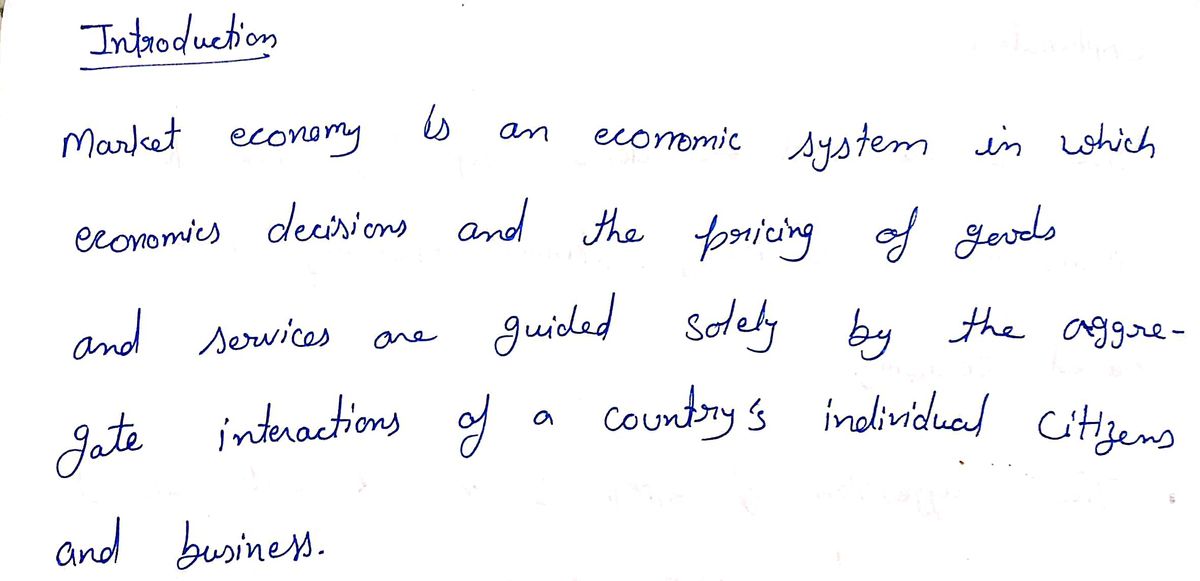 Introduction
Market economy is an economic system in which
economics decisions and the pricing of goods
and services are guided solely by the aggre-
gate interactions of a country's individual citizens
and business.